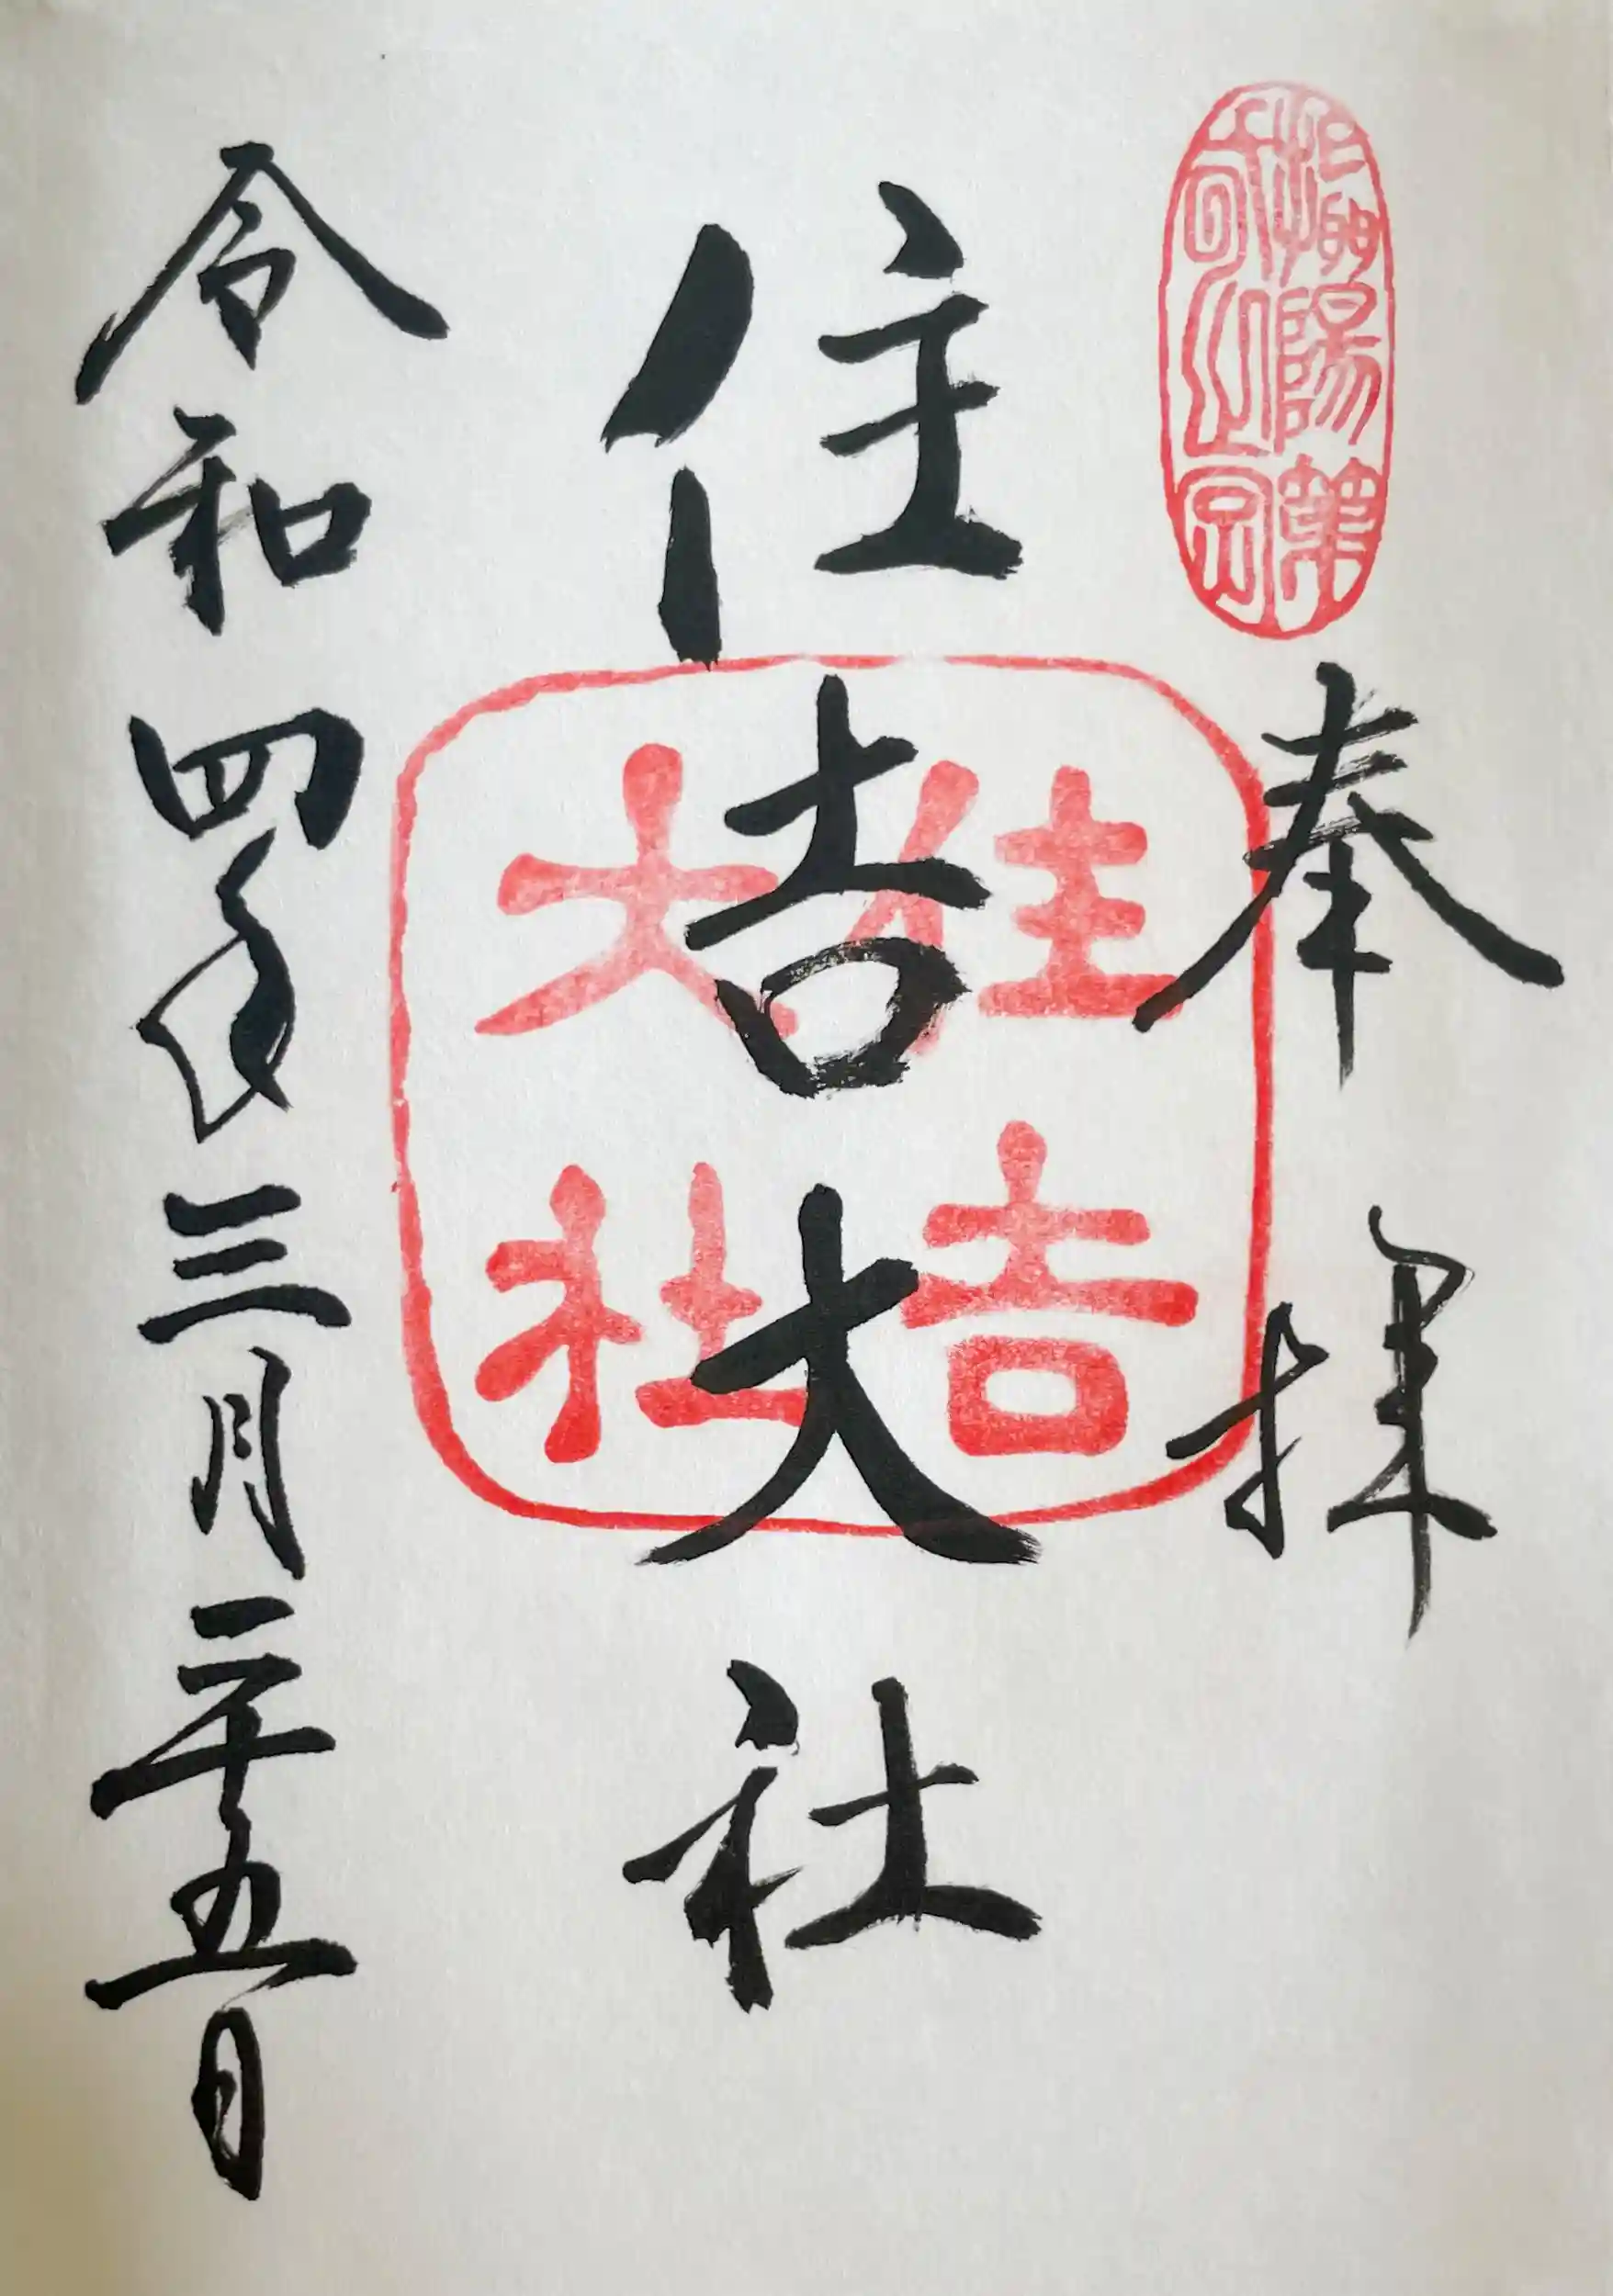 攝陽第
奉拝
住吉大社
住吉
大社
令和四年三月二十五日